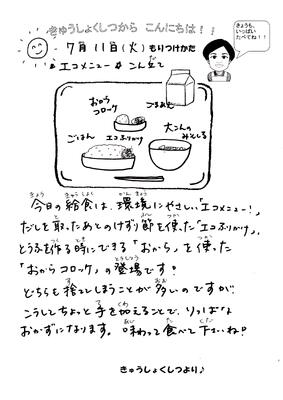 きゅうしょくしつから こんにちは！！
きょうも、
いっぱい
たべてね！！
7月11日(火)もりつけかた
エコメニュー こん立て
おから
コロッケ
ごまあえ
エコふりかけ
ごはん
大こんの
みそしる
今日の給食は、環境にやさしい「エコメニュー！」
だしを取ったあとのけずり節を使った「エコふりかけ」、
とうふを作る時にできる「おから」を使った
「おからコロッケ」の登場です！
どちらも捨てしまうことが多いのですが、
こうしてちょっと手を加えることで、りっぱな
おかずになります。味わって食べて下さいね。
きゅうしょくしつより♪